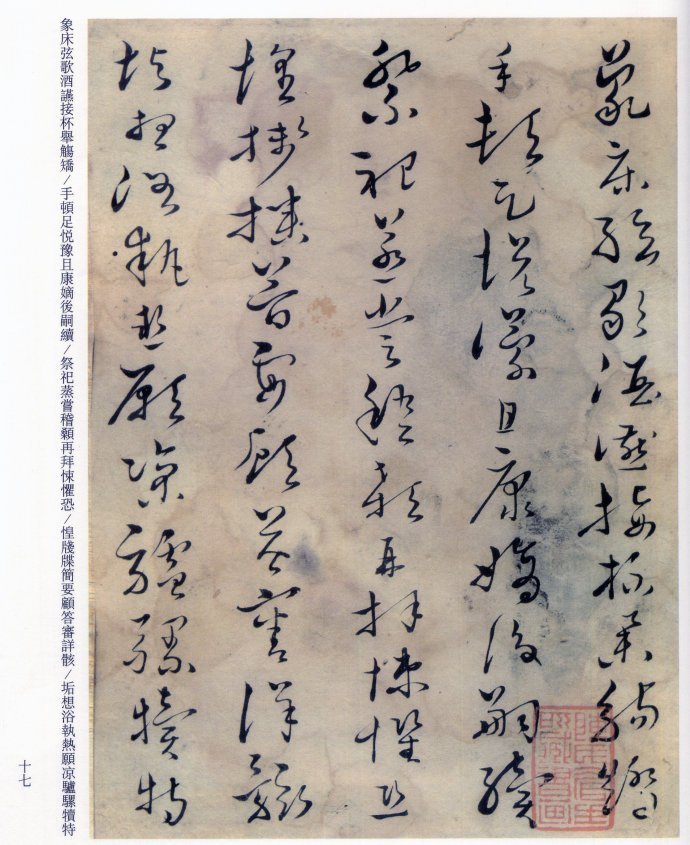 象床弦歌酒讌接杯舉觴矯
手頓足悦豫且康嫡後嗣續
祭祀蒸嘗稽顙再拜悚懼恐
惶牋牒簡要顧答審詳骸
垢想浴執熱願凉驢騾犢特
象床弦歌酒讌接杯舉觴矯/手頓足悦豫且康嫡後嗣續/祭祀蒸嘗稽顙再拜悚懼恐/惶牋牒簡要顧答審詳骸/垢想浴執熱願凉驢騾犢特
十七